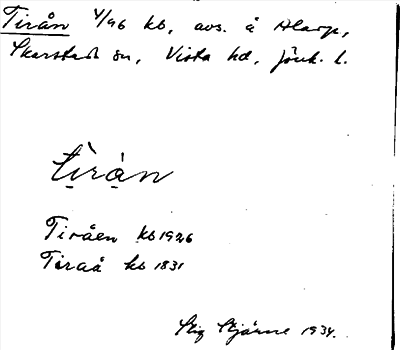 Tirån 4/96 kb, avs. å Alarp,
Skärstad sn, Vista hd, Jönk. l.
tìrån
Tiråen kb 1926
Tiraå kb 1831
Stig Stjärne 1934.